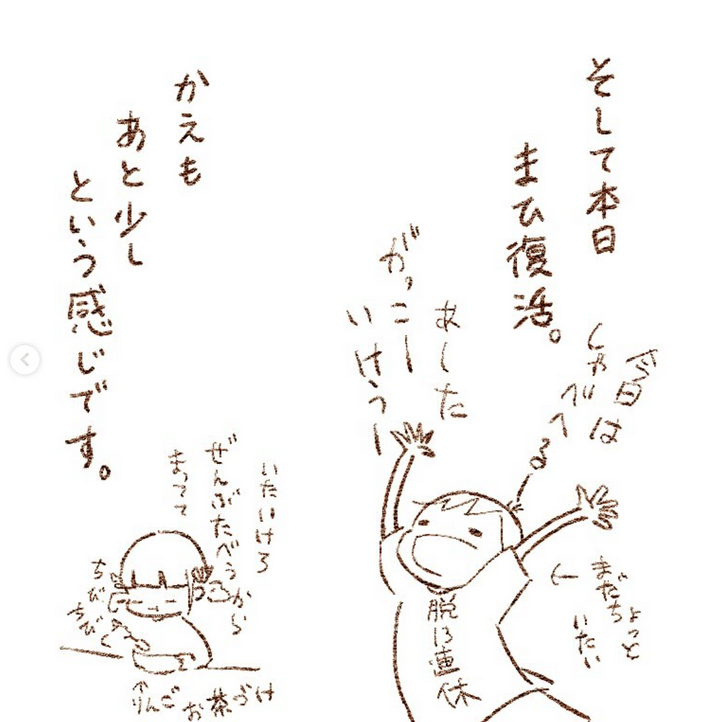 そして本日
まひ復活。
今日は
しゃべへる
あした
がっこー
いけうー
まだちょっと
いたい
脱13連休
かえも
あと少し
という感じです。
いたいけろ
ぜんぶたべうから
まってて
ちび
ちび
りんごお茶づけ